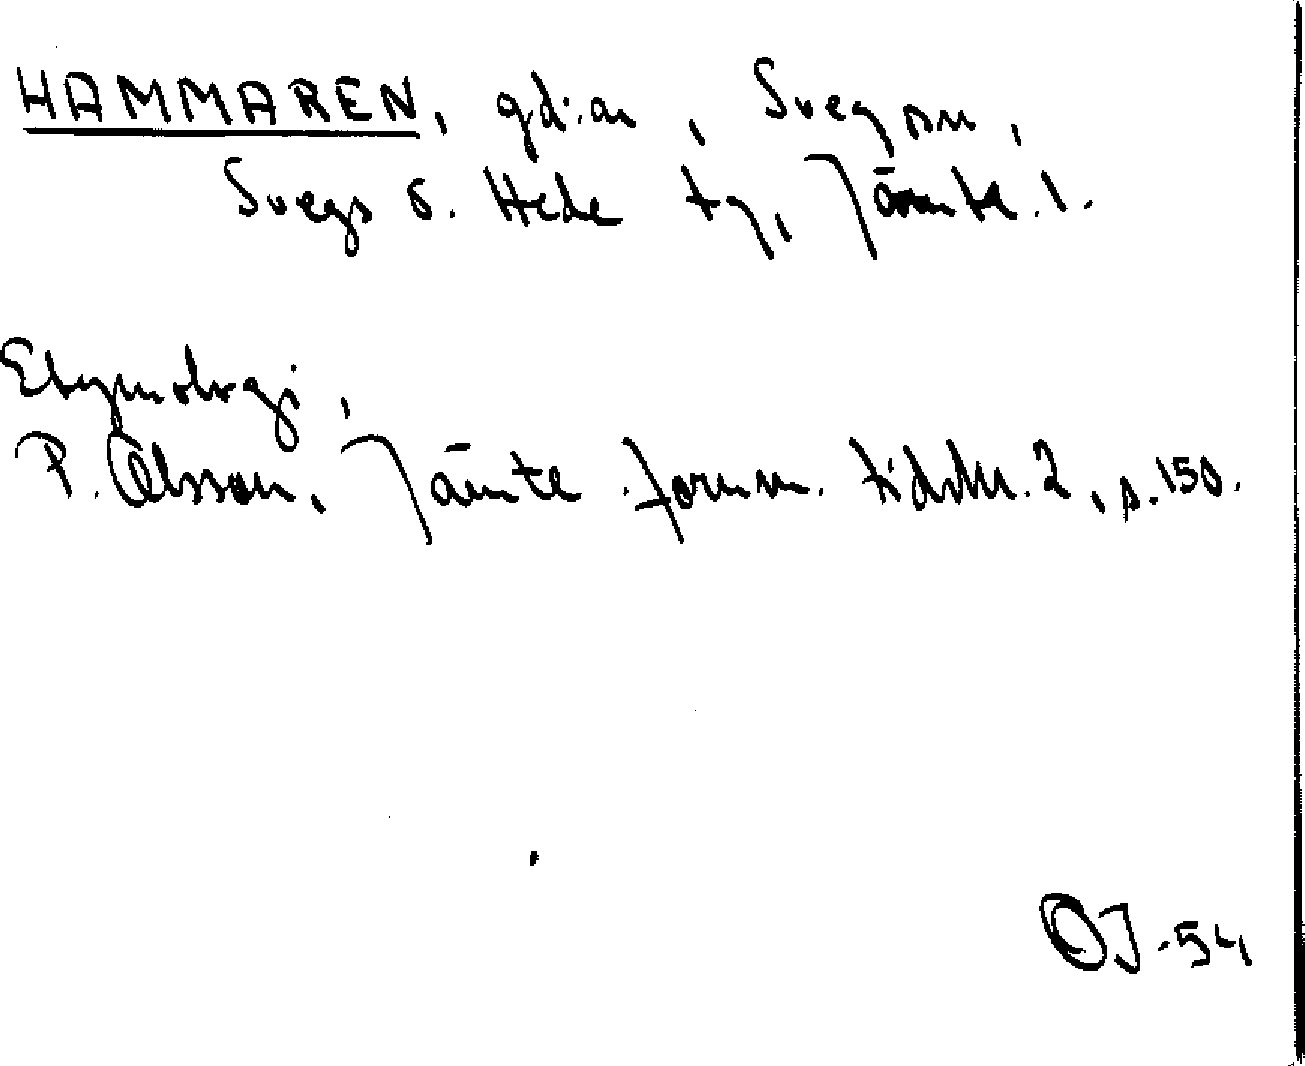 HAMMAREN, gd:ar, Sveg sn,
Svegs o. Hede tg, Jämtl. l.
Etymologi,
P. Olsson, Jämte fornm. tidskr. 2, s. 150.
OJ -54